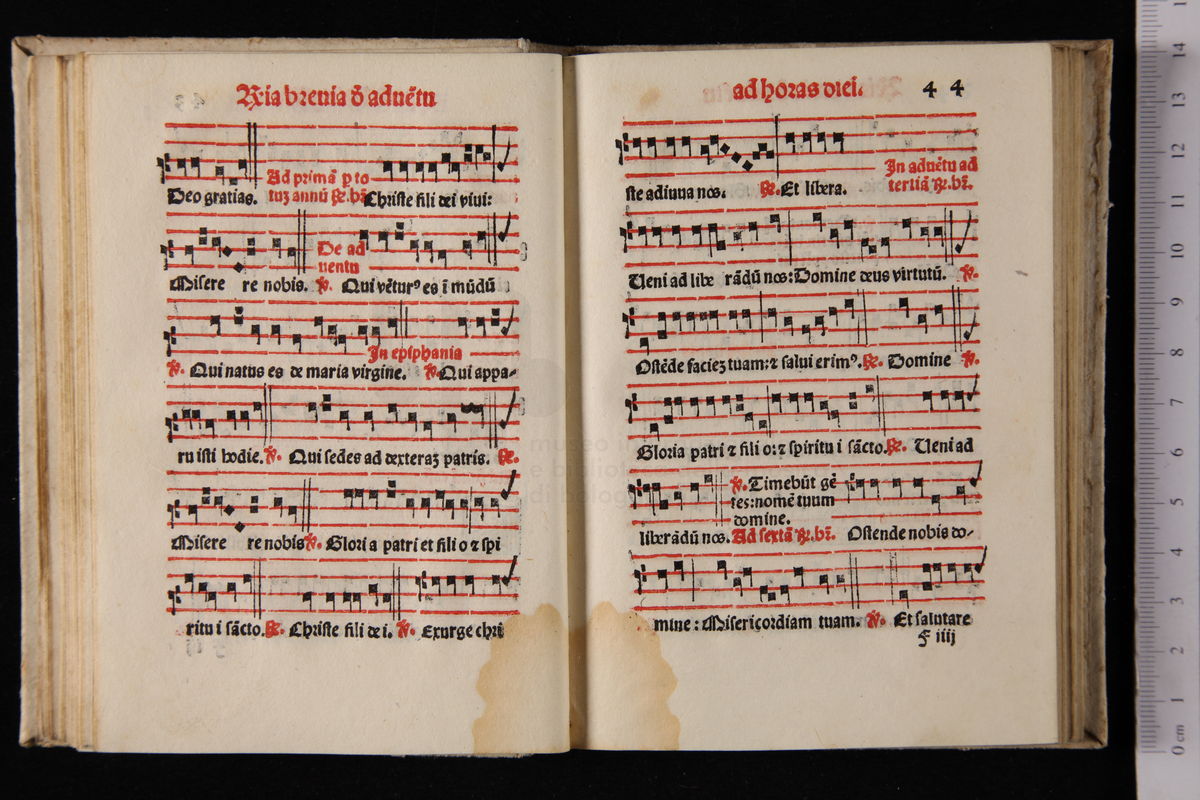 R̃ia brevia ð aduẽtu
Deo gratias. Ad primã p to
tuȝ annũ ℟. br̃. Christe fili dei viui:
Misere re nobis. ℣. De ad
uentu Qui vẽturꝰ es ĩ mũdũ
℣. Qui natus es de maria virgine. In epiphania ℣. Qui appa-
ruisti hodie. ℣. Qui sedes ad dexteraȝ patris. ℟.
Misere re nobis ℣. Glori a patri et fili o ⁊ spi
ritu i sãcto. ℟. Christe fili de i. ℣. Exurge chri
ad horas diei. 44
ste adiuua nos. ℟. Et libera. In aduẽtu ad
tertiã ℟. br̃.
Ueni ad libe rãdũ nos: Domine deus virtutũ. ℣.
Ostẽde facieȝ tuam: ⁊ salui erimꝰ. ℟. Domine ℣.
Gloria patri ⁊ fili o: ⁊ spiritu i sãcto. ℟. Ueni ad
℣. Timebũt gẽ
tes: nomẽ tuum
domine.
liberãdũ nos. Ad sextã ℟. br̃. Ostende nobis do-
mine: Misericordiam tuam. ℣. Et salutare
F iiij
museo
e biblio
di bologna
0 cm 1 2 3 4 5 6 7 8 9 10 11 12 13 14